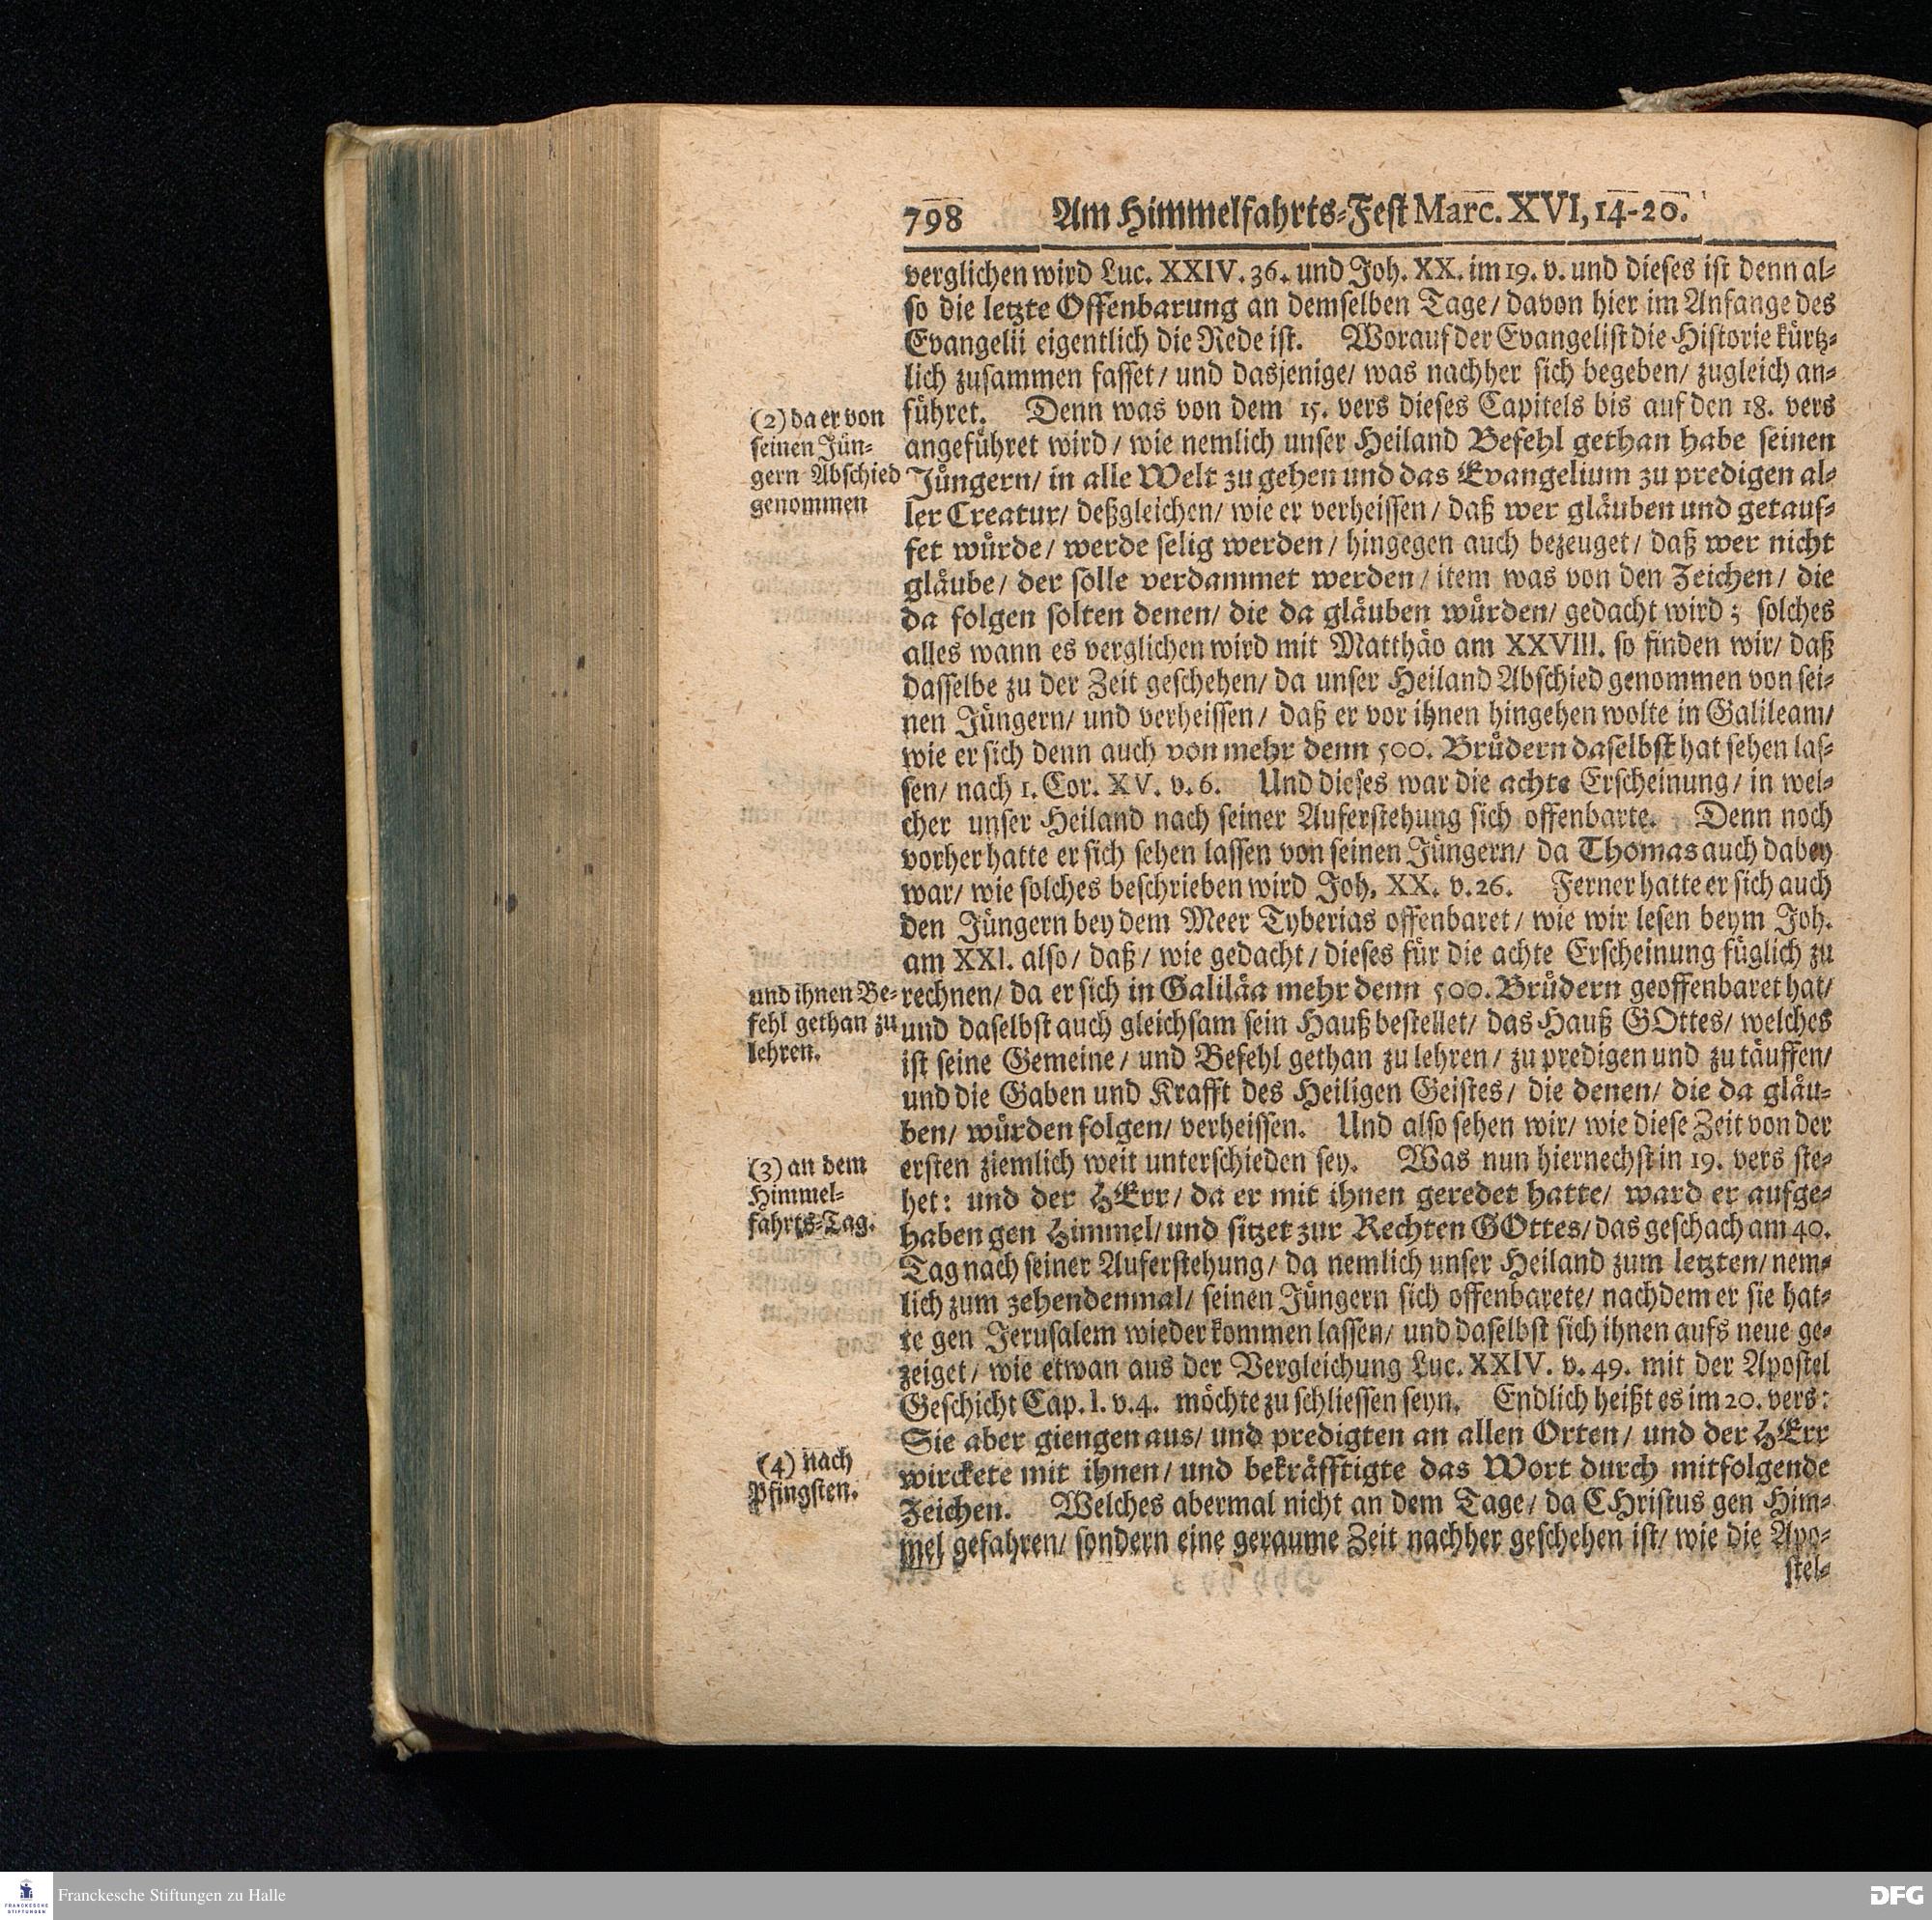 798 Am Himmelfahrts-Fest Marc. XVI, 14-20.
verglichen wird Luc. XXIV. 36. und Joh. XX. im 19. v. und dieses ist denn al-
so die letzte Offenbarung an demselben Tage/ davon hier im Anfange des
Evangelii eigentlich die Rede ist. Worauf der Evangelist die Historie kürtz-
lich zusammen fasset/ und dasjenige/ was nachher sich begeben/ zugleich an-
führet. Denn was von dem 15. vers dieses Capitels bis auf den 18. vers
angeführet wird/ wie nemlich unser Heiland Befehl gethan habe seinen
Jüngern/ in alle Welt zu gehen und das Evangelium zu predigen al-
ler Creatur/ deßgleichen/ wie er verheissen/ daß wer gläuben und getauf-
fet würde/ werde selig werden/ hingegen auch bezeuget/ daß wer nicht
gläube/ der solle verdammet werden/ item was von den Zeichen/ die
da folgen solten denen/ die da gläuben würden/ gedacht wird; solches
alles wann es verglichen wird mit Matthäo am XXVIII. so finden wir/ daß
dasselbe zu der Zeit geschehen/ da unser Heiland Abschied genommen von sei-
nen Jüngern/ und verheissen/ daß er vor ihnen hingehen wolte in Galileam/
wie er sich denn auch von mehr denn 500. Brüdern daselbst hat sehen las-
sen/ nach 1. Cor. XV. v. 6. Und dieses war die achte Erscheinung/ in wel-
cher unser Heiland nach seiner Auferstehung sich offenbarte. Denn noch
vorher hatte er sich sehen lassen von seinen Jüngern/ da Thomas auch dabey
war/ wie solches beschrieben wird Joh. XX. v. 26. Ferner hatte er sich auch
den Jüngern bey dem Meer Tyberias offenbaret/ wie wir lesen beym Joh.
am XXI. also/ daß/ wie gedacht/ dieses für die achte Erscheinung füglich zu
rechnen/ da er sich in Galiläa mehr denn 500. Brüdern geoffenbaret hat/
und daselbst auch gleichsam sein Hauß bestellet/ das Hauß GOttes/ welches
ist seine Gemeine/ und Befehl gethan zu lehren/ zu predigen und zu täuffen/
und die Gaben und Krafft des Heiligen Geistes/ die denen/ die da gläu-
ben/ würden folgen/ verheissen. Und also sehen wir/ wie diese Zeit von der
ersten ziemlich weit unterschieden sey. Was nun hiernechst in 19. vers ste-
het: und der HErr/ da er mit ihnen geredet hatte/ ward er aufge-
haben gen Himmel/ und sitzet zur Rechten GOttes/ das geschach am 40.
Tag nach seiner Auferstehung/ da nemlich unser Heiland zum letzten/ nem-
lich zum zehendenmal/ seinen Jüngern sich offenbarete/ nachdem er sie hat-
te gen Jerusalem wieder kommen lassen/ und daselbst sich ihnen aufs neue ge-
zeiget/ wie etwan aus der Vergleichung Luc. XXIV. v. 49. mit der Apostel
Geschicht Cap. I. v. 4. möchte zu schliessen seyn. Endlich heißt es im 20. vers:
Sie aber giengen aus/ und predigten an allen Orten/ und der HErr
wirckete mit ihnen/ und bekräfftigte das Wort durch mitfolgende
Zeichen. Welches abermal nicht an dem Tage/ da CHristus gen Him-
mel gefahren/ sondern eine geraume Zeit nachher geschehen ist/ wie die Apo-
stel-
(2) da er von
seinen Jün-
gern Abschied
genommen
und ihnen Be-
fehl gethan zu
lehren.
(3) an dem
Himmel-
fahrts-Tag.
(4) nach
Pfingsten.
Franckesche Stiftungen zu Halle
FRANCKESCHE
STIFTUNGEN
DFG